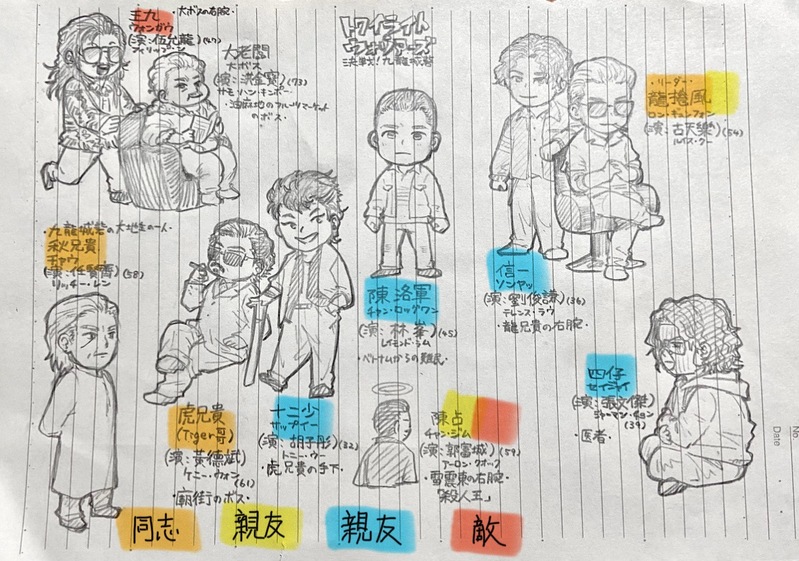 王九
ウォンガウ
(演:伍允龍)(47)
フィリップ・ン
・大ボスの右腕・
大老闆
大ボス
(演:洪金寶)(73)
サモ・ハン・キンポー
・油麻地のフルーツマーケット
のボス・
トワイライト
ウォリアーズ
決戦!九龍城砦
・リーダー・
龍捲風
ロン・ギュンフォン
(演:古天樂)(54)
ルイス・クー
・九龍城砦の大地主の一人・
秋兄貴
チャウ
(演:任賢齊)(58)
リッチー・レン
陳洛軍
チャン・ロッグワン
(演:林峯)(45)
レイモンド・ラム
・ベトナムからの難民・
信一
ソンヤッ
(演:劉俊謙)(36)
テレンス・ラウ
・龍兄貴の右腕・
四仔
セイジャイ
(演:張文傑)
ジャーマン・チョン
(39)
・医者・
虎兄貴
(Tiger哥)
(演:黃德斌)
ケニー・ウォン
(61)
・廟街のボス・
十二少
サップイー
(演:胡子彤)(32)
トニー・ウー
・虎兄貴の手下・
陳占
チャン・ジム
(演:郭富城)(59)
アーロン・クオック
・雷震東の右腕・
「殺人王」
同志
親友
親友
敵
Date
No